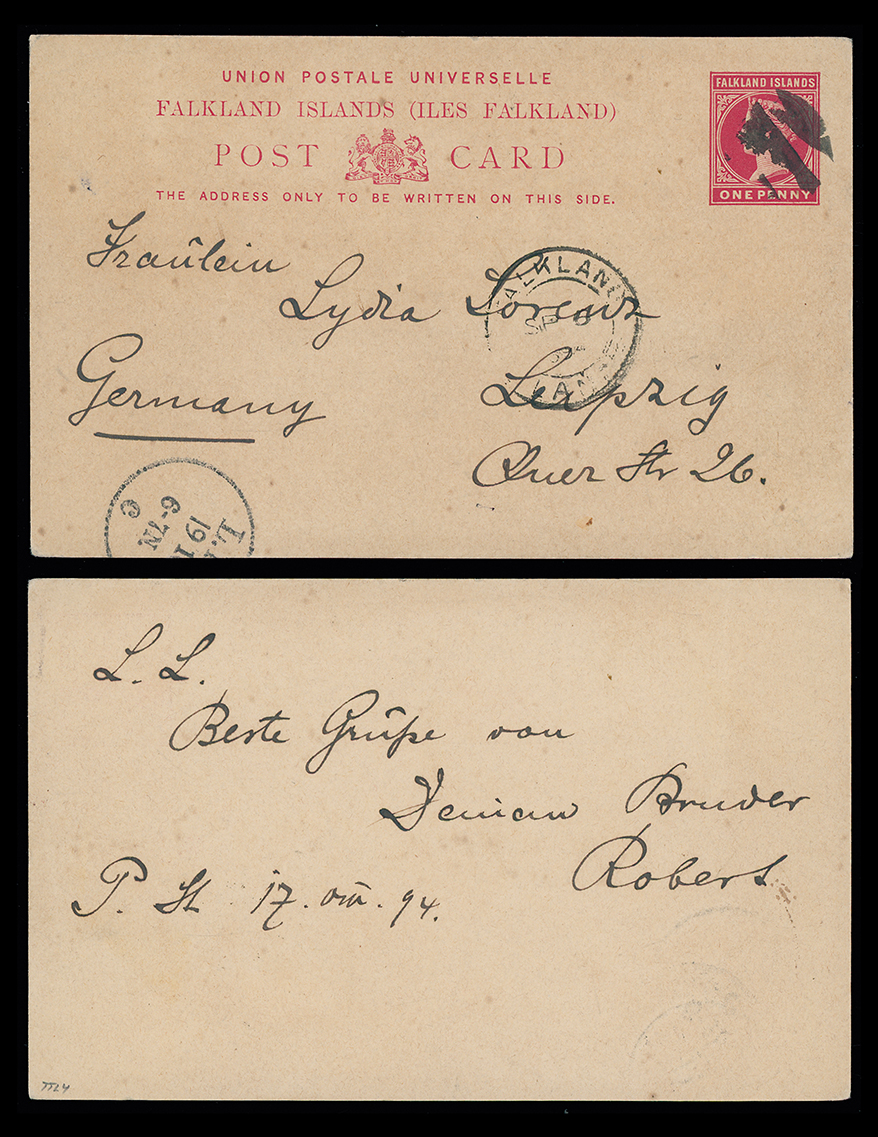 UNION POSTALE UNIVERSELLE
FALKLAND ISLANDS (ILES FALKLAND)
POST CARD
THE ADDRESS ONLY TO BE WRITTEN ON THIS SIDE.
FALKLAND ISLANDS
ONE PENNY
Fraülein
Lydia Lorenz
Germany
Leipzig
Quer Str 26.
FALKLAND
SP
L. L.
Beste Grüße von
Deinem Bruder
Robert
P. St 17. VIII. 94.